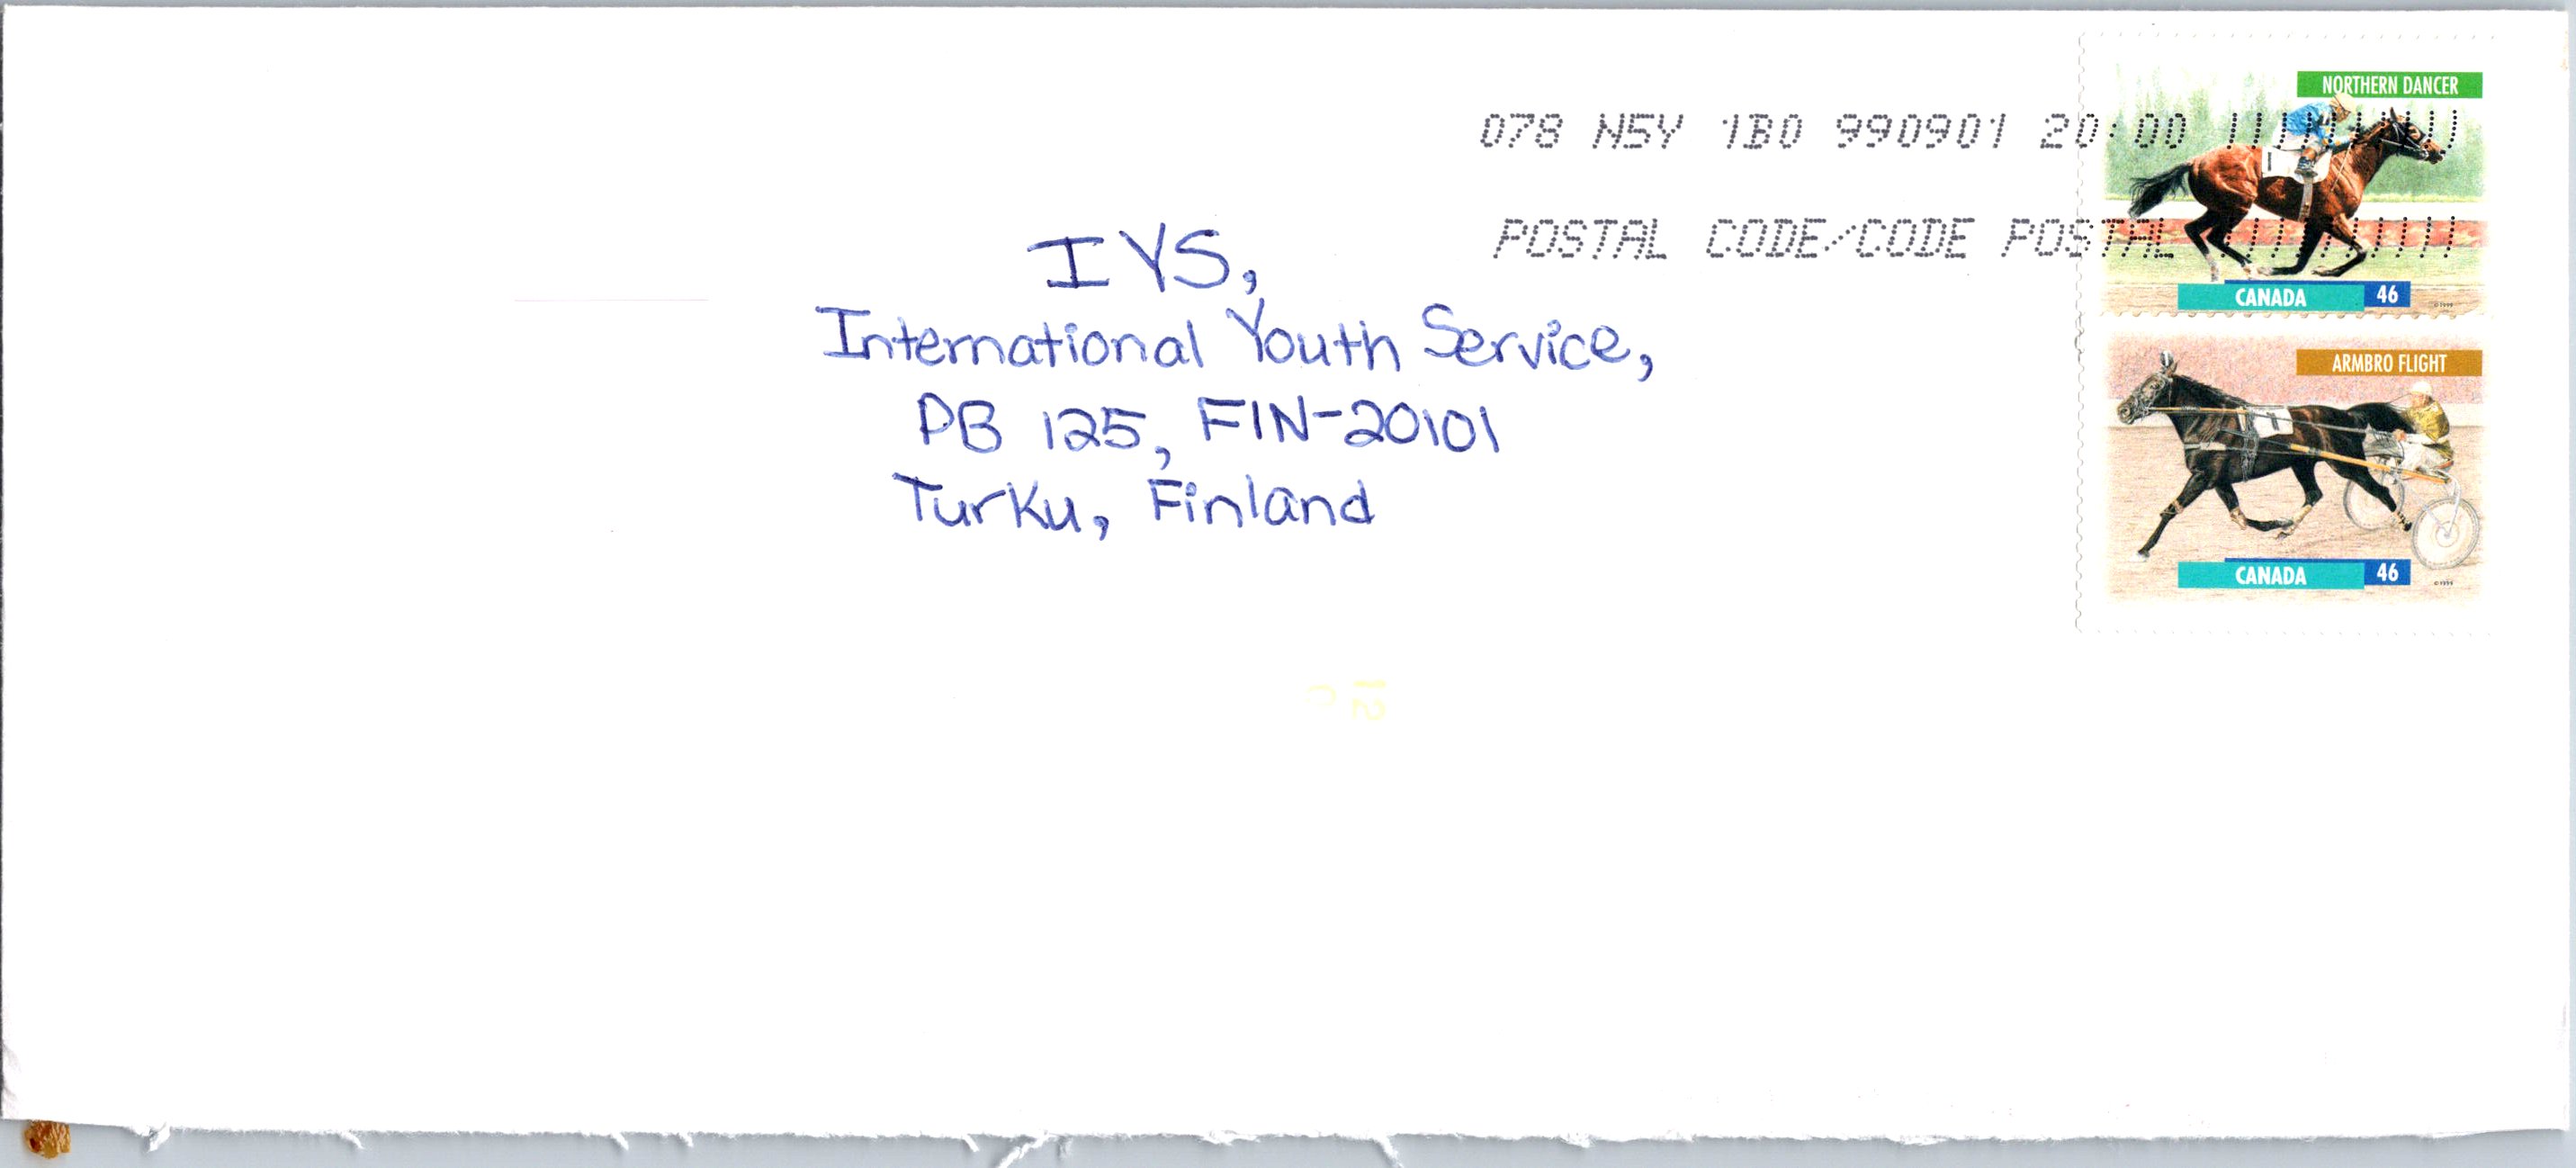 078 N5Y 1B0 990901 20:00
POSTAL CODE/CODE POSTAL
NORTHERN DANCER
CANADA 46
©1999
ARMBRO FLIGHT
CANADA 46
©1999
IYS,
International Youth Service,
PB 125, FIN-20101
Turku, Finland
12